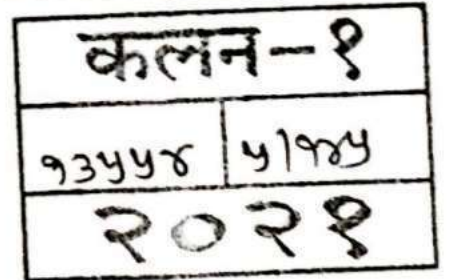 कलन-१
१३५५४ ५/१४५
२०२१